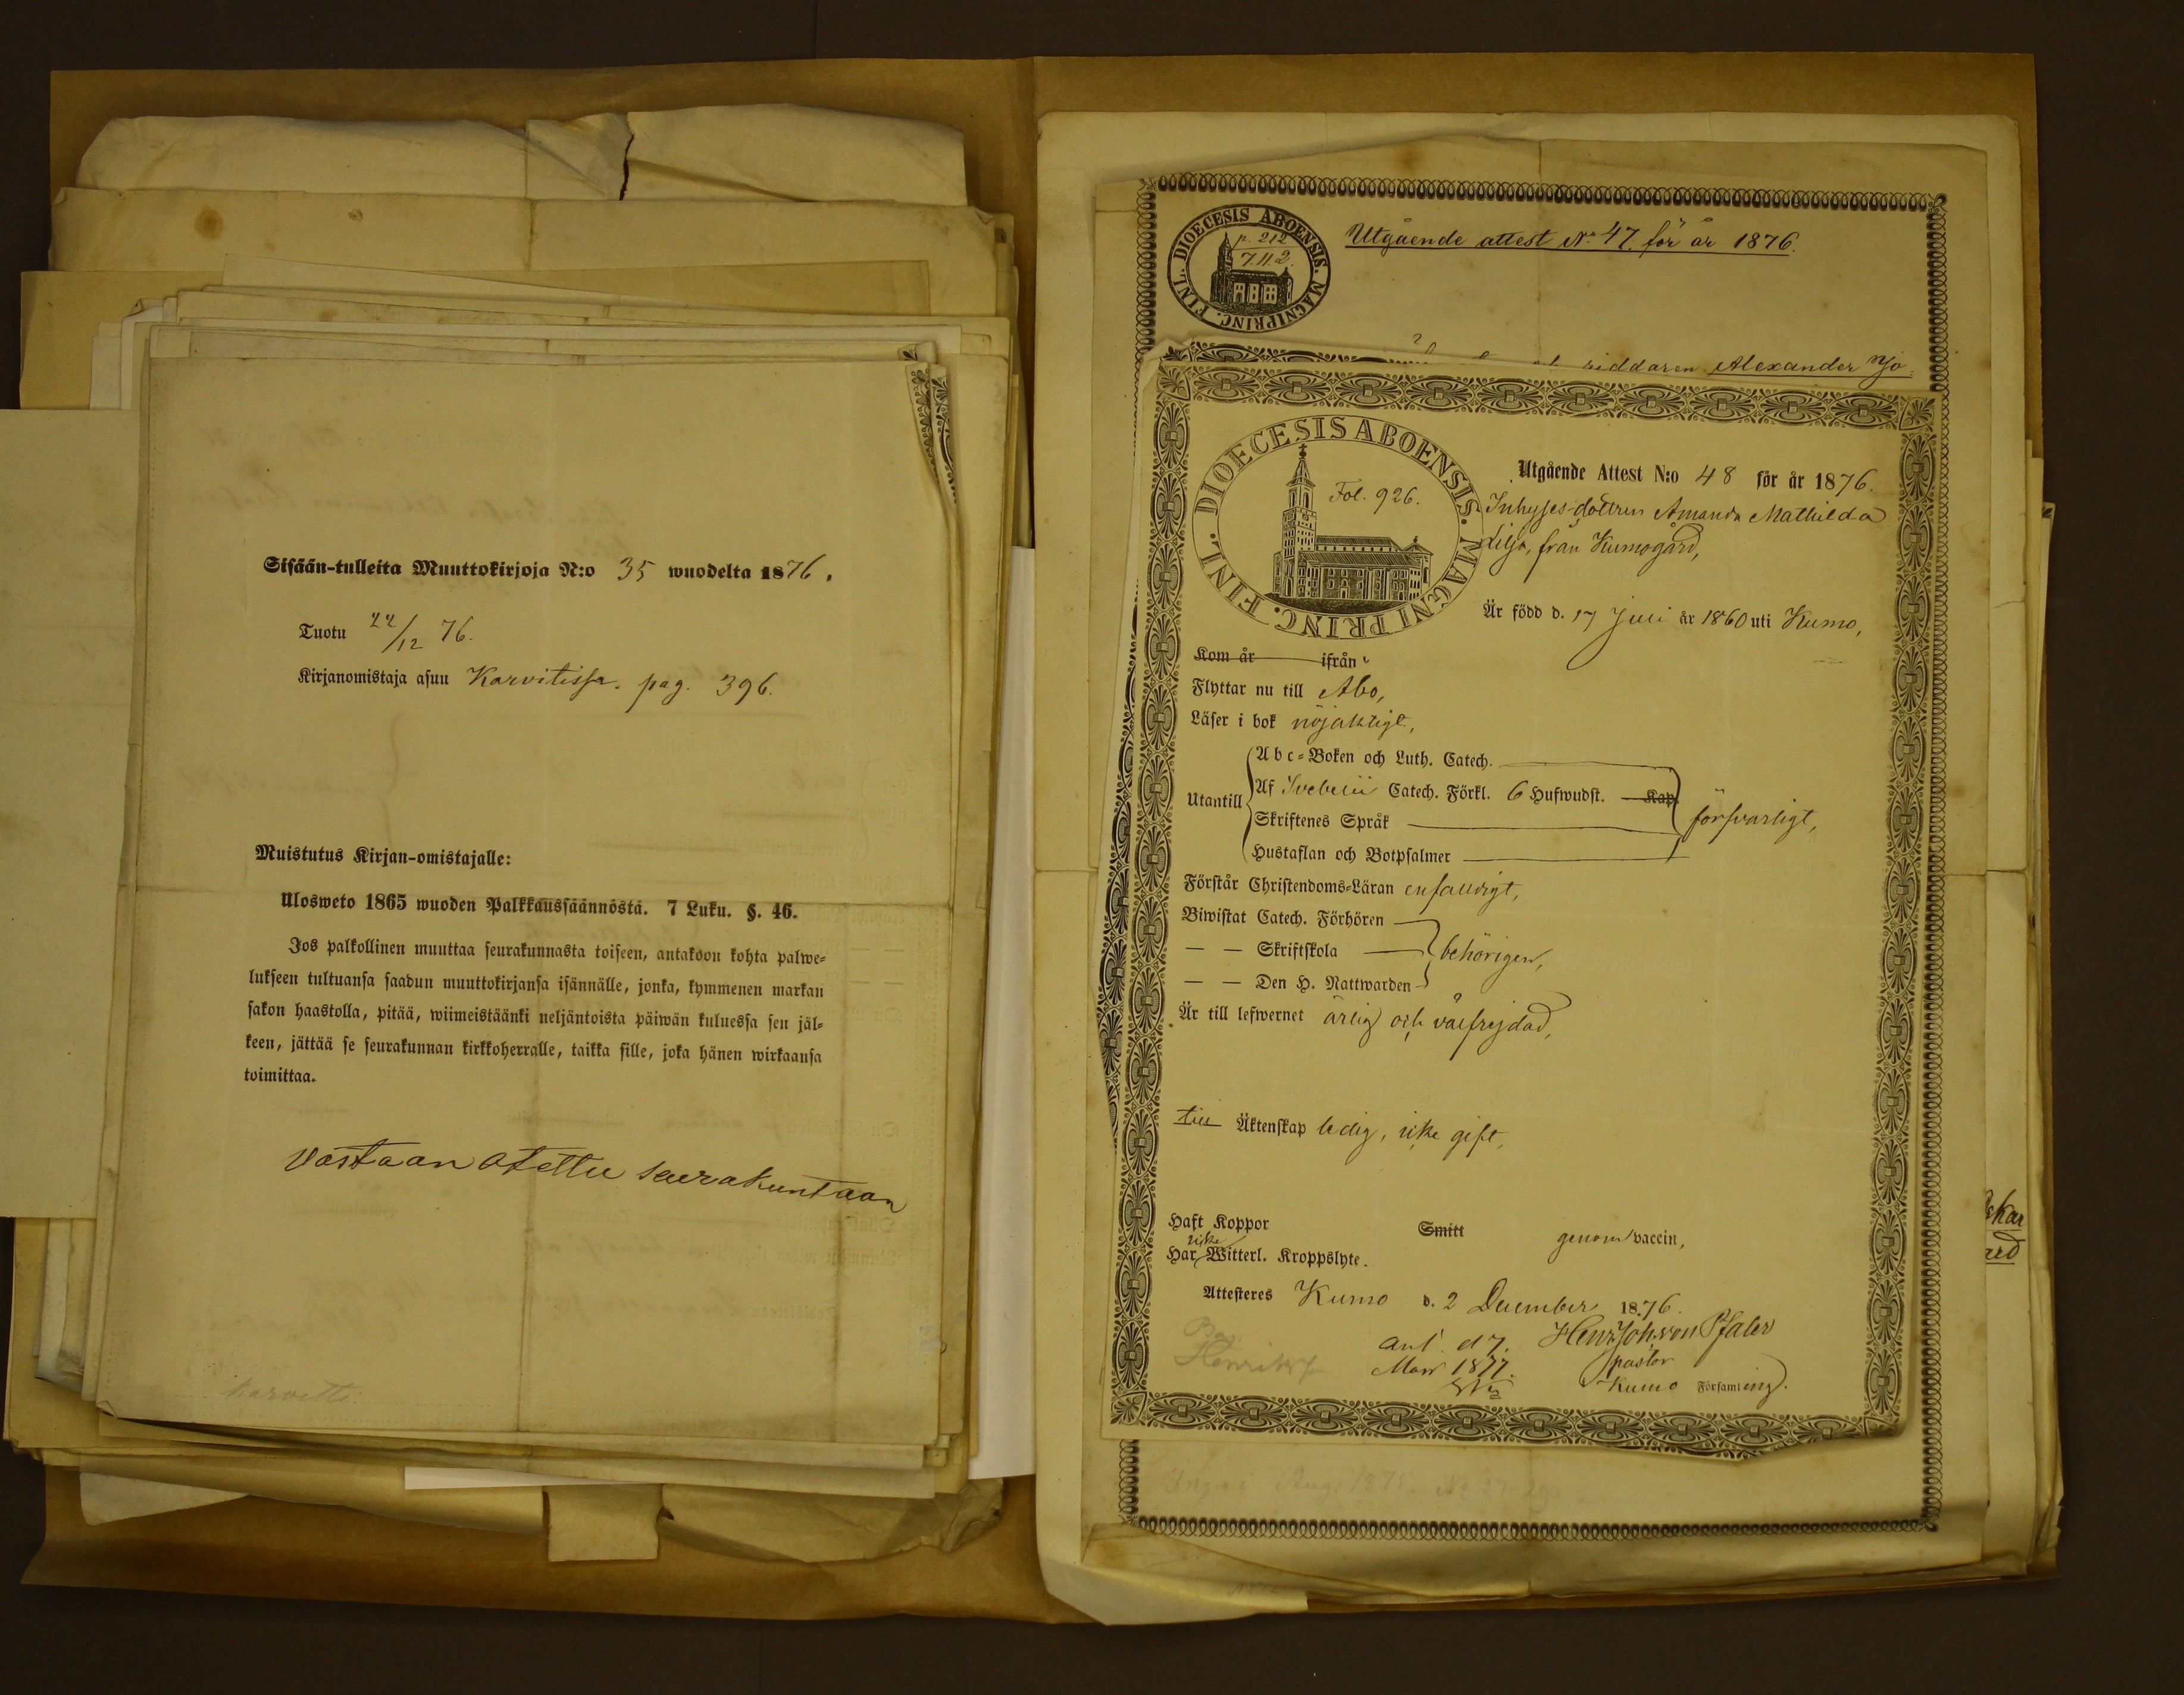 Sisään-tulleita Muuttokirjoja N:o 35 wuodelta 1876.
Tuotu 22/12 76.
Kirjanomistaja asuu Karvitissa. pag. 396.
Muistutus Kirjan-omistajalle:
Ulosweto 1865 wuoden Palkkaussäännöstä. 7 Luku. §. 46.
Jos palkollinen muuttaa seurakunnasta toiseen, antakoon kohta palwe-
lukseen tultuansa saadun muuttokirjansa isännälle, jonka, kymmenen markan
sakon haastolla, pitää, wiimeistäänki neljäntoista päiwän kuluessa sen jäl-
keen, jättää se seurakunnan kirkkoherralle, taikka sille, joka hänen wirkaansa
toimittaa.
Vastaan otettu seurakuntaan
Karvetti
DIOECESIS ABOENSIS. MAGNI PRINC. FINL.
p. 212
7.11.2.
Utgående attest No 47 för år 1876.
riddaren Alexander
DIOECESIS ABOENSIS. MAGNI PRINC. FINL.
Fol. 926.
Utgående Attest N:o 48 för år 1876.
Inhyses dottren Amanda Mathilda
Lilja, från Kumogård,
Är född d. 17 Juli år 1860 uti Kumo,
Kom år ifrån
Flyttar nu till Åbo,
Läser i bok nöjaktigt,
Utantill
Abc-Boken och Luth. Catech.
Af Svebelii Catech. Förkl. 6 Hufwudst. Kap.
Skriftenes Språk
Hustaflan och Botpsalmer
försvarligt,
Förstår Christendoms-Läran enfalldigt,
Biwistat Catech. Förhören
— — Skriftskola
— — Den H. Nattwarden
behörigen,
Är till lefwernet ärlig och välfrejdad,
till Äktenskap ledig, icke gift,
Haft Koppor Smitt genom vaccin,
Har icke Witterl. Kroppslyte.
Attesteres Kumo d. 2 December 1876.
Henr. Joh. von Pfaler
pastor
Kumo Församling.
Anf. d 7.
Mars 1877.